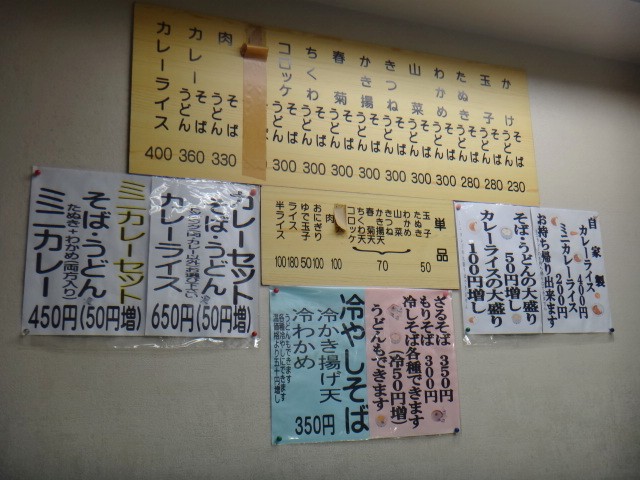 かけ そば うどん 230
玉子 そば うどん 280
たぬき そば うどん 280
わかめ そば うどん 300
山菜 そば うどん 300
きつね そば うどん 300
かき揚 そば うどん 300
春菊 そば うどん 300
ちくわ そば うどん 300
コロッケ そば うどん 300
肉 そば うどん 330
カレー そば うどん 360
カレーライス 400
単品
玉子
たぬき
わかめ
山菜
50
きつね
かき天
春菊天
ちくわ天
コロッケ
70
肉 100
おにぎり 100
ゆで玉子 50
ライス 180
半ライス 100
カレーセット
そば・うどん
カレーライス
650円(50円増)
ミニカレーセット
そば・うどん
たぬき・わかめ(両方入り)
ミニカレー
450円(50円増)
ざるそば 350円
もりそば 300円
冷しそば各種できます
(冷50円増)
うどんもできます
冷やしそば
冷かき揚げ天
冷わかめ
350円
うどんもできます
自家製
カレーライス 400円
ミニカレーライス
お持ち帰り出来ます
そば・うどんの大盛り
50円増し
カレーライスの大盛り
100円増し